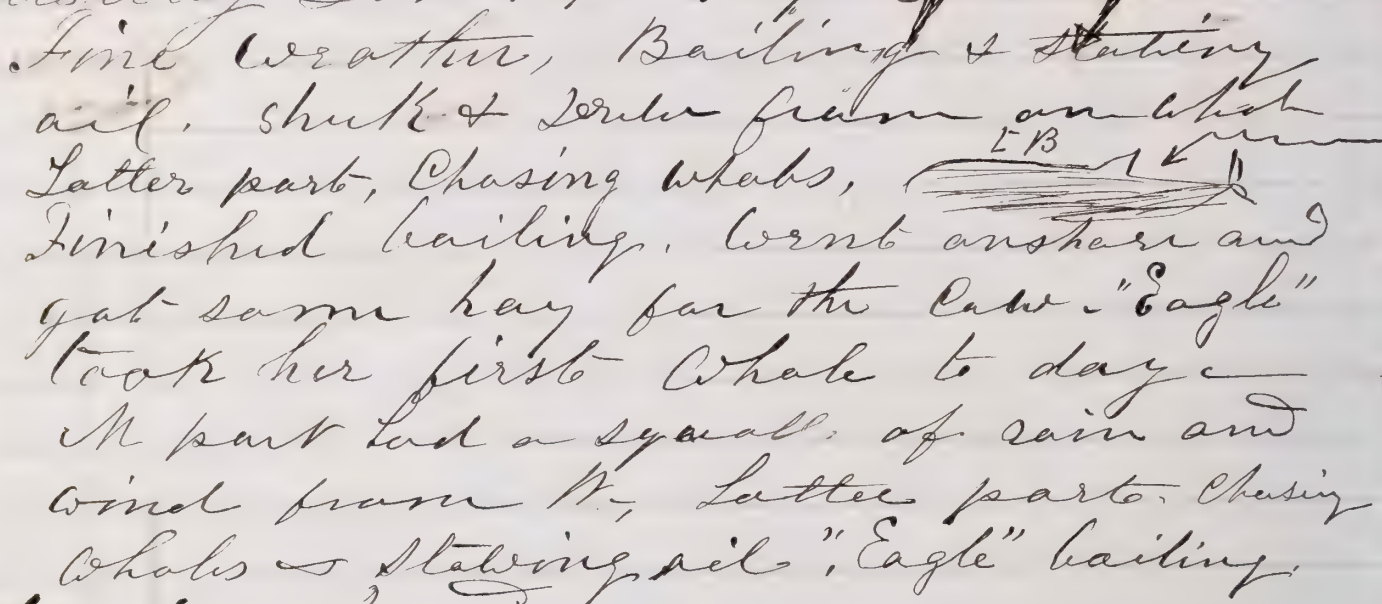 Fine weather, Boiling & stowing
oil. struck & drew from on whale
L B
Latter part, Chasing whales,
Finished boiling. Went onshore and
got some hay for the Cow. "Eagle"
took her first Whale to day
M part had a squall of rain and
wind from W, Latter part. Chasing
Whales & Stowing oil, "Eagle" boiling.